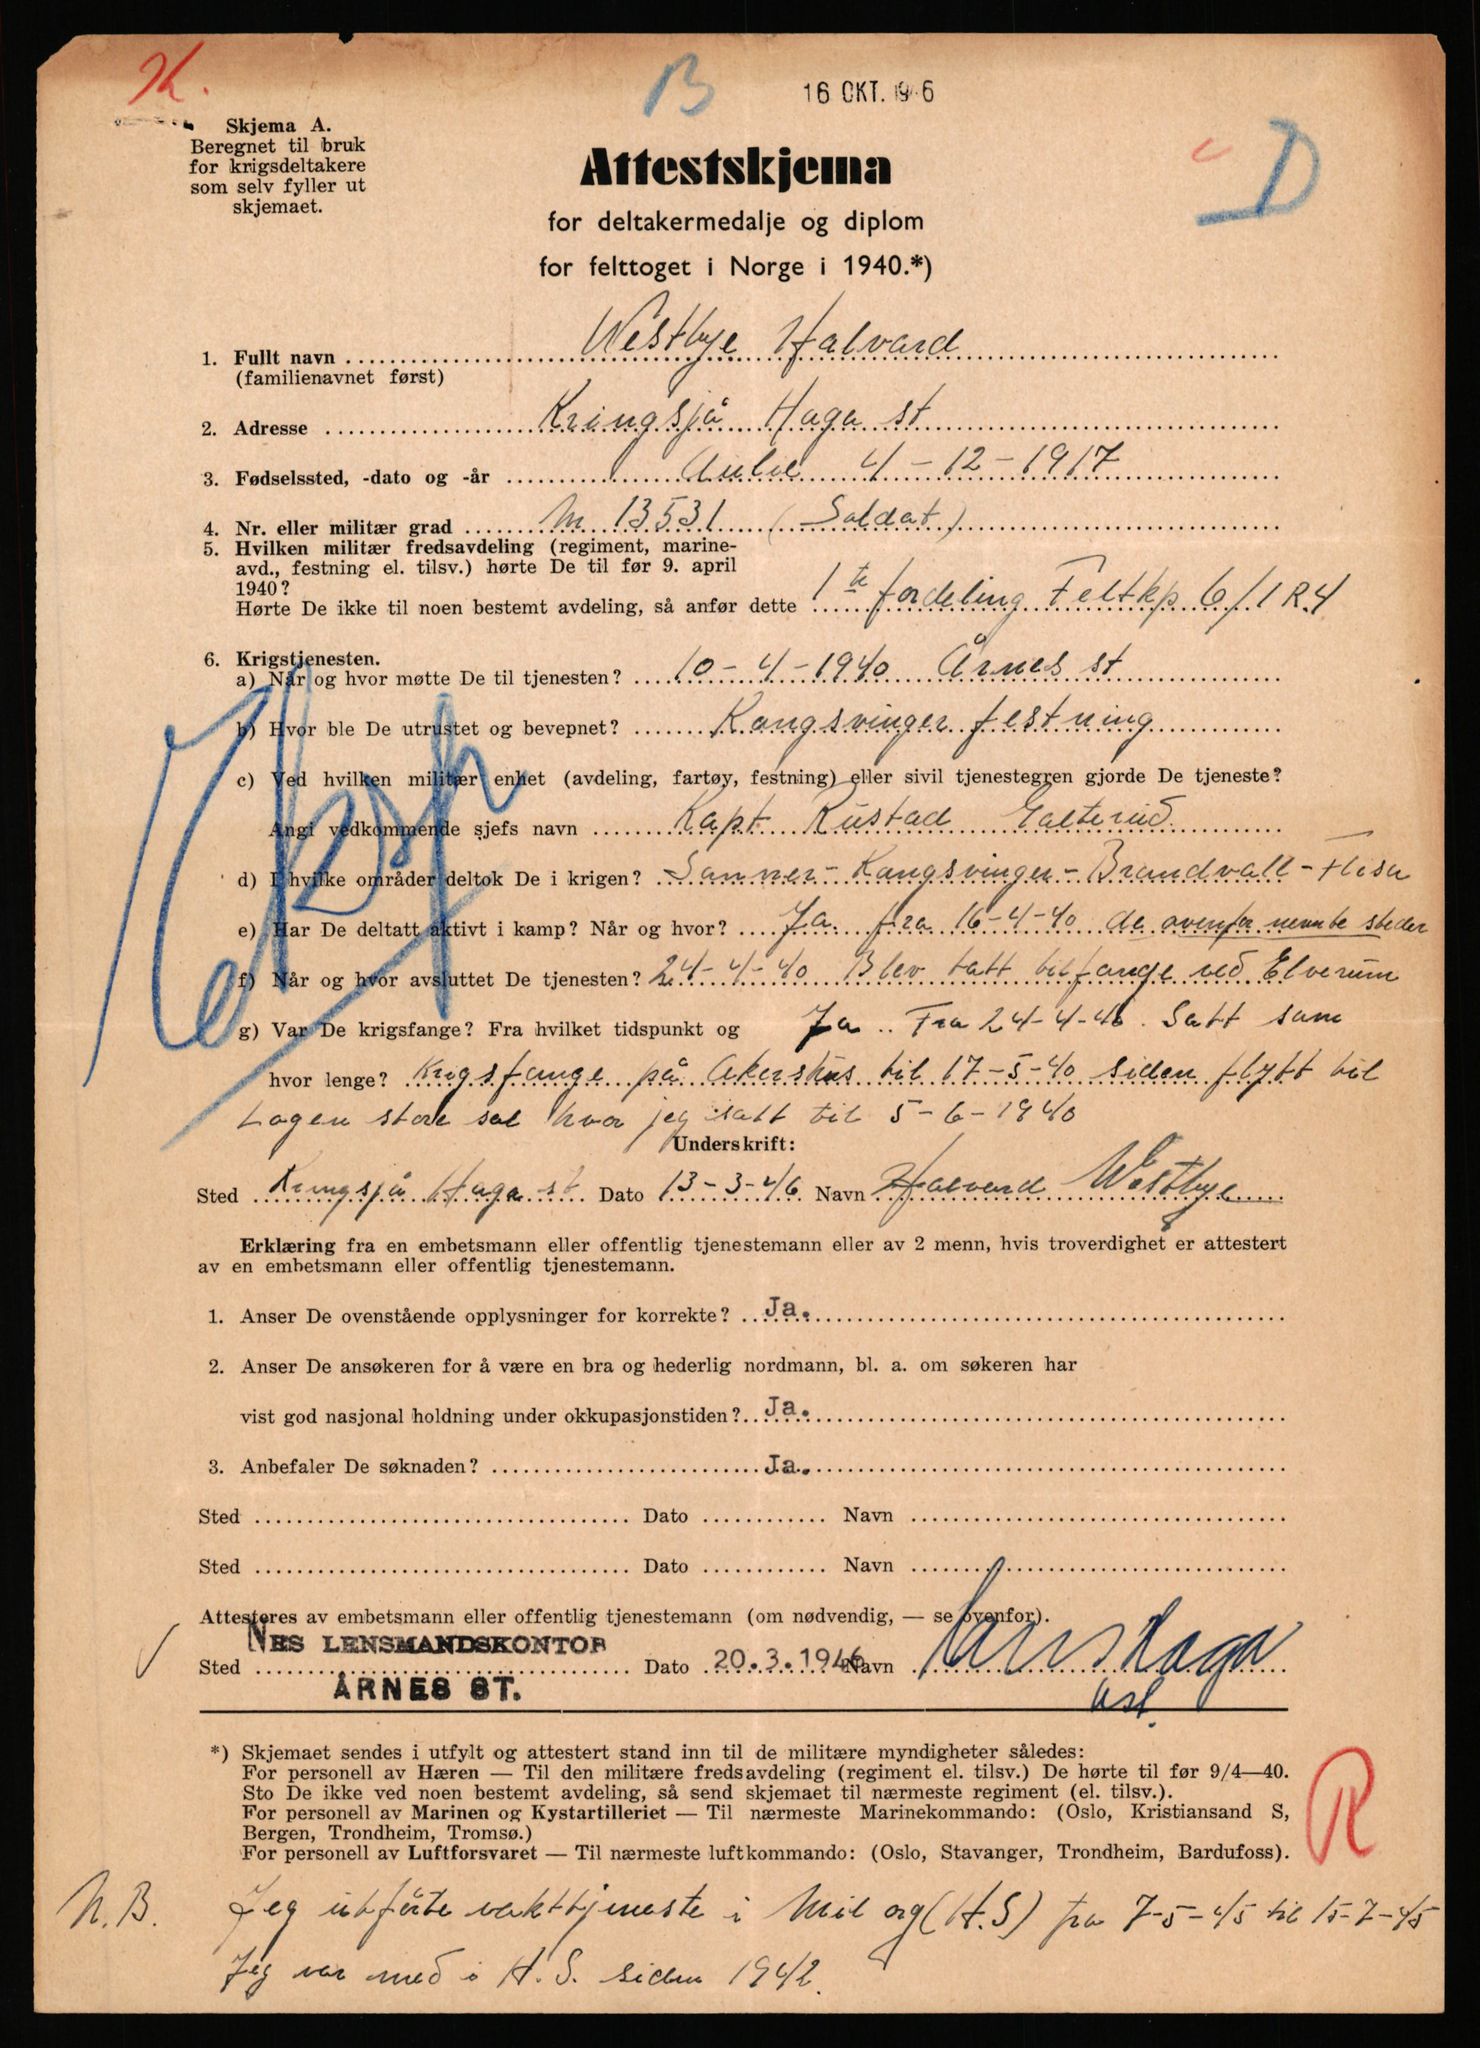 K.
B
16 OKT. 1946
D
Skjema A.
Beregnet til bruk
for krigsdeltakere
som selv fyller ut
skjemaet.
Attestskjema
for deltakermedalje og diplom
for felttoget i Norge i 1940.*)
1. Fullt navn Westbye Halvard
(familienavnet først)
2. Adresse Kringsjå Haga st
3. Fødselssted, -dato og -år Auli 4-12-1917
4. Nr. eller militær grad M 13531 (Soldat)
5. Hvilken militær fredsavdeling (regiment, marine-
avd., festning el. tilsv.) hørte De til før 9. april
1940?
Hørte De ikke til noen bestemt avdeling, så anfør dette 1te fordeling Feltkp 6/I R.4
6. Krigstjenesten.
a) Når og hvor møtte De til tjenesten? 10-4-1940 Årnes st
b) Hvor ble De utrustet og bevepnet? Kongsvinger festning
c) Ved hvilken militær enhet (avdeling, fartøy, festning) eller sivil tjenestegren gjorde De tjeneste?
Angi vedkommende sjefs navn Kapt Rustad Galterud
d) I hvilke områder deltok De i krigen? Sanner - Kongsvinger - Brandvall - Flisa
e) Har De deltatt aktivt i kamp? Når og hvor? Ja fra 16-4-40 de ovenfor nevnte steder
f) Når og hvor avsluttet De tjenesten? 24-4-40 Blev tatt tilfange ved Elverum
g) Var De krigsfange? Fra hvilket tidspunkt og Ja .. Fra 24-4-40. Satt som
hvor lenge? Krigsfange på Akershus til 17-5-40 siden flytt til
Lagen store sal hvor jeg satt til 5-6-1940
Underskrift:
Sted Kringsjå Haga st Dato 13-3-46 Navn Halvard Westbye
Erklæring fra en embetsmann eller offentlig tjenestemann eller av 2 menn, hvis troverdighet er attestert
av en embetsmann eller offentlig tjenestemann.
1. Anser De ovenstående opplysninger for korrekte? Ja.
2. Anser De ansøkeren for å være en bra og hederlig nordmann, bl. a. om søkeren har
vist god nasjonal holdning under okkupasjonstiden? Ja.
3. Anbefaler De søknaden? Ja.
Sted Dato Navn
Sted Dato Navn
Attesteres av embetsmann eller offentlig tjenestemann (om nødvendig, — se ovenfor).
NES LENSMANDSKONTOR
Sted Dato 20.3.1946 Navn Haga
ÅRNES ST.
*) Skjemaet sendes i utfylt og attestert stand inn til de militære myndigheter således:
For personell av Hæren — Til den militære fredsavdeling (regiment el. tilsv.) De hørte til før 9/4—40.
Sto De ikke ved noen bestemt avdeling, så send skjemaet til nærmeste regiment (el. tilsv.).
For personell av Marinen og Kystartilleriet — Til nærmeste Marinekommando: (Oslo, Kristiansand S,
Bergen, Trondheim, Tromsø.)
For personell av Luftforsvaret — Til nærmeste luftkommando: (Oslo, Stavanger, Trondheim, Bardufoss).
R
N.B. Jeg utførte vakttjeneste i Mil org (H.S) fra 7-5-45 til 15-7-45
Jeg var med i H.S. siden 1942.